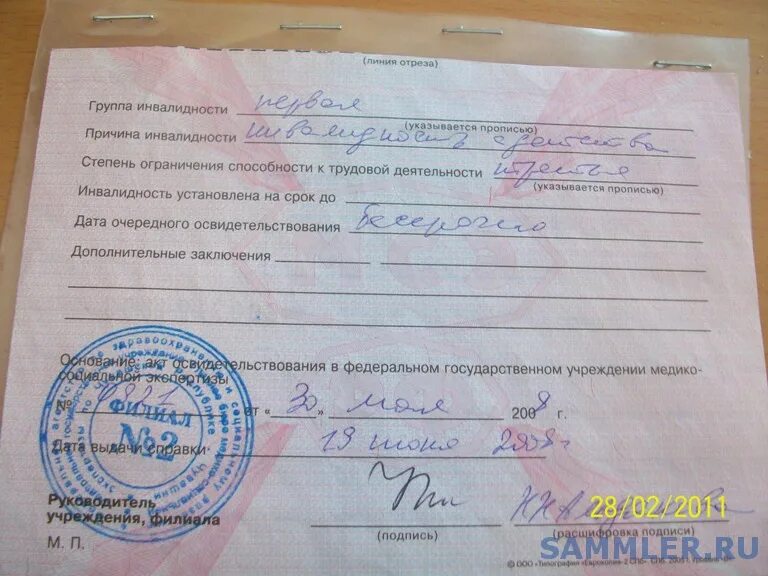 (линия отреза)
Группа инвалидности первая
(указывается прописью)
Причина инвалидности инвалидность с детства
Степень ограничения способности к трудовой деятельности третья
(указывается прописью)
Инвалидность установлена на срок до
Дата очередного освидетельствования бессрочно
Дополнительные заключения
Основание: акт освидетельствования в федеральном государственном учреждении медико-
социальной экспертизы
№ от « 30 » мая 2008 г.
Дата выдачи справки 19 июня 2008г
ФИЛИАЛ
№2
Руководитель
учреждения, филиала
(подпись)
(расшифровка подписи)
М. П.
28/02/2011
SAMMLER.RU
© ООО «Типография «Еврокопия-2 СПб»